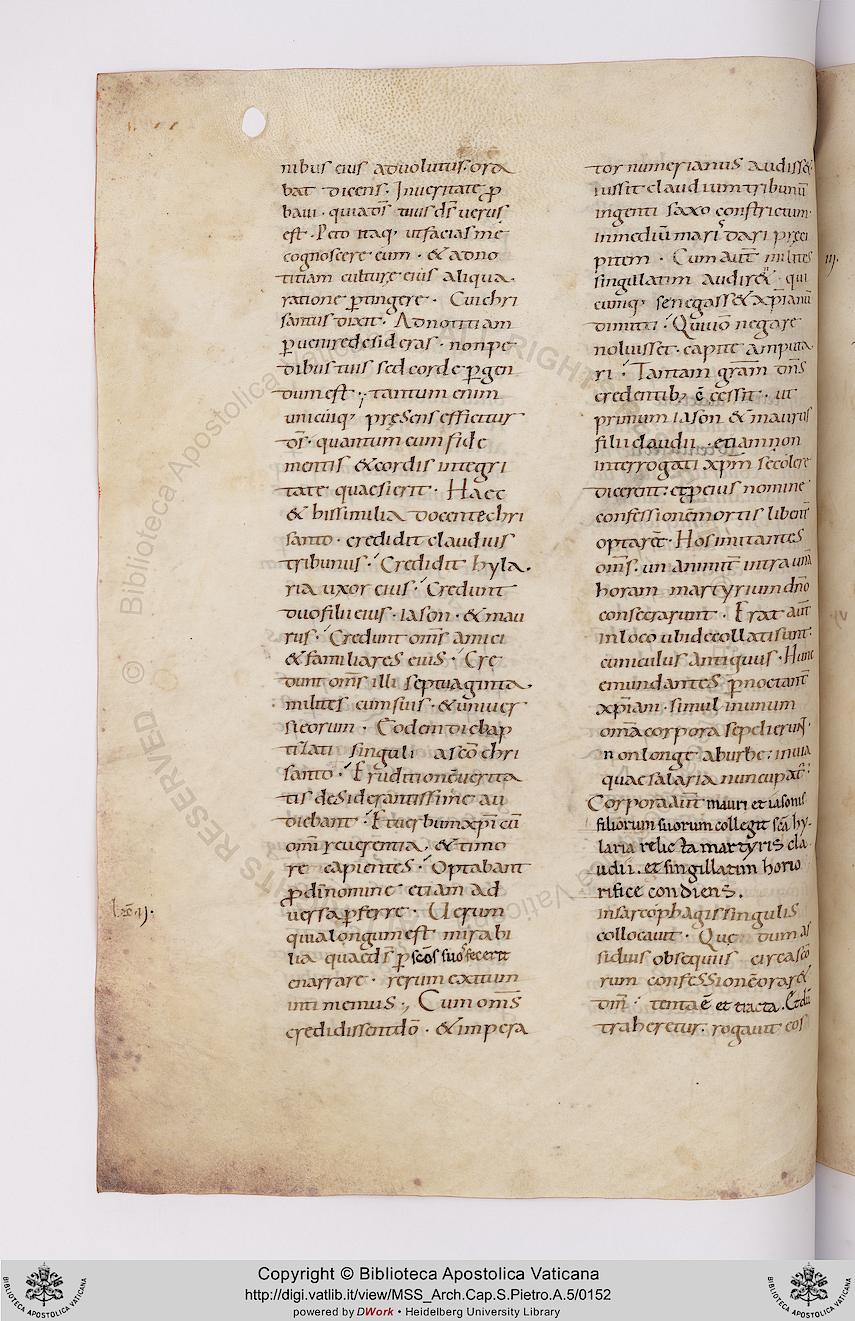 nibus eius advolutus. ora
bat dicens. Inveritate ꝓ
bavi. quia ds̄ tuus ds̄ verus
est. Peto itaq; utfacias me
cognoscere eum. & adno
titiam culturę eius aliqua.
ratione ꝑtingere. Cui chri
santus dixit. Adnotitiam
ꝑvenire desideras. nonpe
dibus tuis sed corde ꝑgen
dum est. tantum enim
unicuiq; pręsens efficitur
ds̄. quantum eum fide
mentis & cordis integri
tate quaesierit. Haec
& hissimilia docente chri
santo. credidit claudius
tribunus. Credidit hyla.
ria uxor eius. Credunt
duo filii eius. iason. & mau
rus. Credunt om̄s amici
& familiares eius. Cre
dunt om̄s illi septuaginta.
milites cum suis. & univer
si eorum. Eodem die bap
tizati singuli a sc̄o chri
santo. Eruditionē verita
tis desiderantissime au
diebant. Et verbum xp̄i cū
om̄i reverentia. & timo
re capientes. Optabant
ꝓ dī nomine etiam ad
versa ꝑferre. Verum
quia longum est mirabi
lia quae ds̄ ꝑ sc̄os suos fecerit
enarrare. rerum exitum
intimemus. Cum om̄s
credidissent dō. & impera
tor numerianus audisse&
iussit claudium tribunū
ingenti saxo constrictum.
in mediū maris dari pręci
pitem. Cum aut̄ milites
singillatim audir& qui
cumq; se negass& xp̄ianū
dimitti. Qui vō negare
noluisset. capite amputa
ri. Tantam gr̄am dn̄s
credentib; cessit. ut
primum iason & maurus
filii claudii. etiam non
interrogati xp̄m se colere
dicerent: et ꝓ eius nomine
confessionē mortis libent̄
optarēt. Hos imitantes
om̄s. un animit̄ intra unā
horam martyrium dn̄o
consecrarunt. Erat aut̄
in loco ubi decollati sunt.
cuniculus antiquus. Hunc
emundantes ꝑ noctant̄
xp̄iani. simul in unum
om̄a corpora sepelierunt.
non longe ab urbe: in via
quae salaria nuncupat̄.
Corpora aut̄ mauri et iasonis
filiorum suorum collegit sc̄a hy
laria relicta martyris cla
udii. et singillatim horio
rifice condiens.
in sarcophagis singulis
collocavit. Que dum as
siduis obsequiis circa sc̄o
rum confessionē orar&
dm̄. tenta ē et tracta. Et dū
traheretur. rogavit eos
iij.
lec̄ ij.
RESERVED © Biblioteca Apostolica Vaticana
Copyright © Biblioteca Apostolica Vaticana
http://digi.vatlib.it/view/MSS_Arch.Cap.S.Pietro.A.5/0152
powered by DWork • Heidelberg University Library
BIBLIOTECA APOSTOLICA VATICANA
BIBLIOTECA APOSTOLICA VATICANA